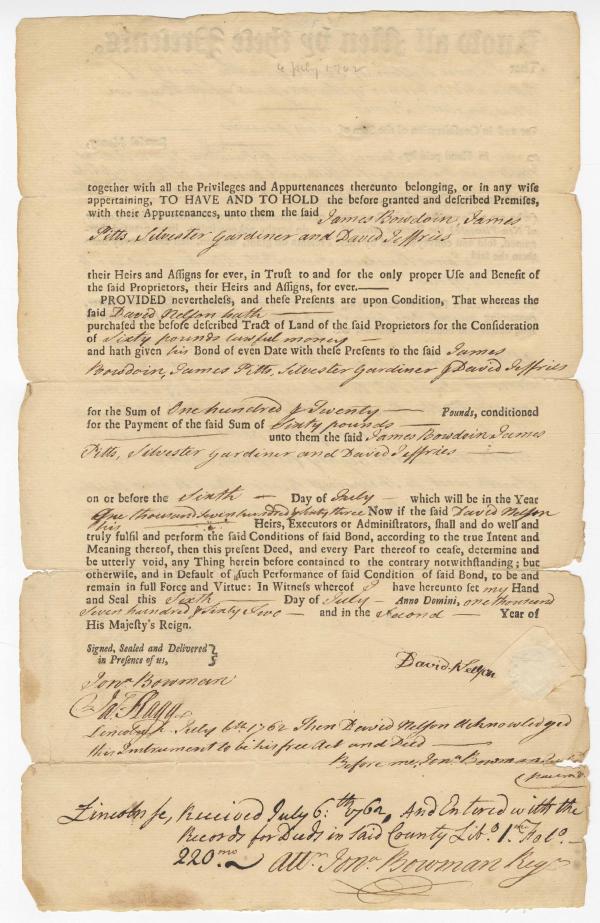 6 July 1762
together with all the Privileges and Appurtenances thereunto belonging, or in any wise
appertaining, TO HAVE AND TO HOLD the before granted and described Premises,
with their Appurtenances, unto them the said James Bowdoin, James
Pitts, Silvester Gardiner and David Jeffries
their Heirs and Assigns for ever, in Trust to and for the only proper Use and Benefit of
the said Proprietors, their Heirs and Assigns, for ever.—
PROVIDED nevertheless, and these Presents are upon Condition, That whereas the
said David Nelson hath —
purchased the before described Tract of Land of the said Proprietors for the Consideration
of Sixty pounds lawful money —
and hath given his Bond of even Date with these Presents to the said James
Bowdoin, James Pitts, Silvester Gardiner & David Jeffries
for the Sum of One hundred & Twenty — Pounds, conditioned
for the Payment of the said Sum of Sixty pounds —
unto them the said James Bowdoin James
Pitts, Silvester Gardiner and David Jeffries —
on or before the Sixth — Day of July — which will be in the Year
One thousand seven hundred & sixty three Now if the said David Nelson
his — Heirs, Executors or Administrators, shall and do well and
truly fulfil and perform the said Conditions of said Bond, according to the true Intent and
Meaning thereof, then this present Deed, and every Part thereof to cease, determine and
be utterly void, any Thing herein before contained to the contrary notwithstanding; but
otherwise, and in Default of such Performance of said Condition of said Bond, to be and
remain in full Force and Virtue: In Witness whereof I have hereunto set my Hand
and Seal this Sixth — Day of July — Anno Domini, one thousand
Seven hundred & Sixty Two — and in the Second — Year of
His Majesty's Reign.
Signed, Sealed and Delivered
in Presence of us,
David Nelson
Jona Bowman
Ja. Flagg
Lincoln ss. July 6th 1762 Then David Nelson Acknowledged
this Instrument to be his free Act and Deed —
Before me, Jona Bowman
Lincoln ss, Received July 6:th 1762, And Entered with the
Records for Deeds in said County Lib.o 1.mo Fol.o —
220mo Att.r Jona Bowman Reg.r